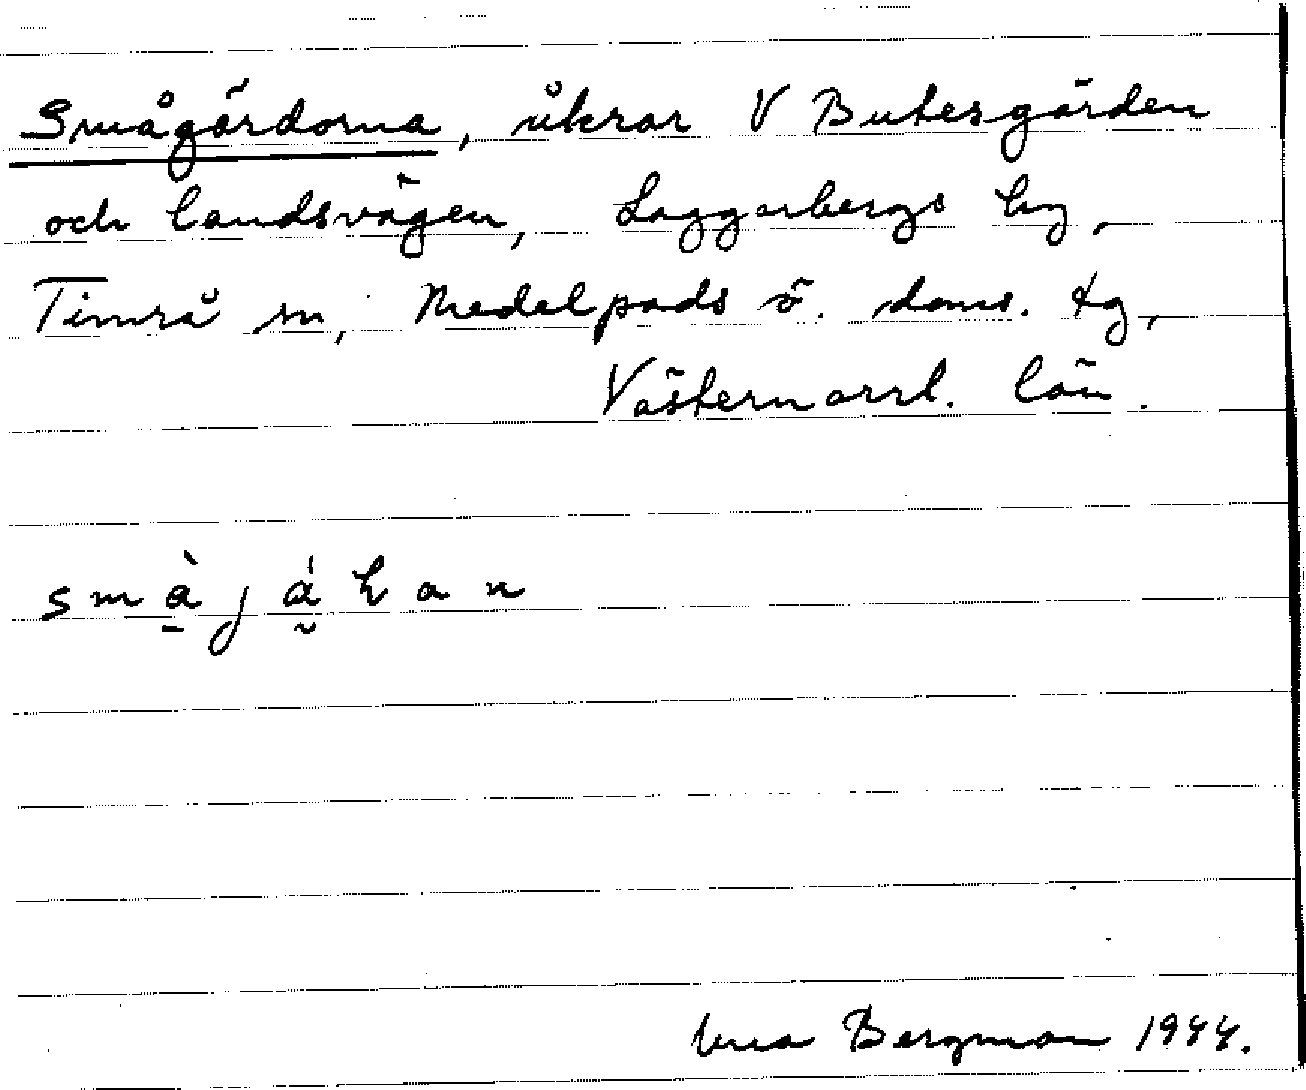 Smågärdorna, åkrar V Butesgården
och landsvägen, Laggarbergs by,
Timrå sn, Medelpads ö. doms. tg,
Västernorrl. län.
Bergman 1944.